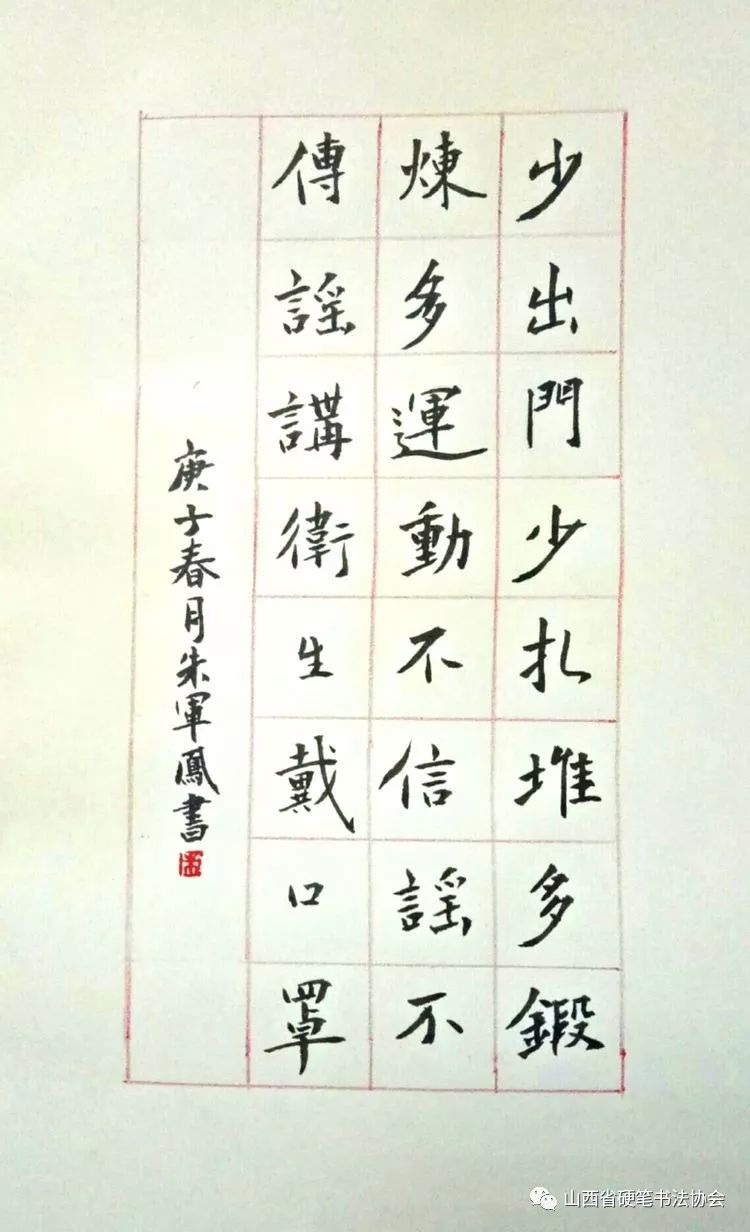 少出門少扎堆多鍛
煉多運動不信謡不
傳謡講衛生戴口罩
庚子春月朱軍鳳書
山西省硬笔书法协会